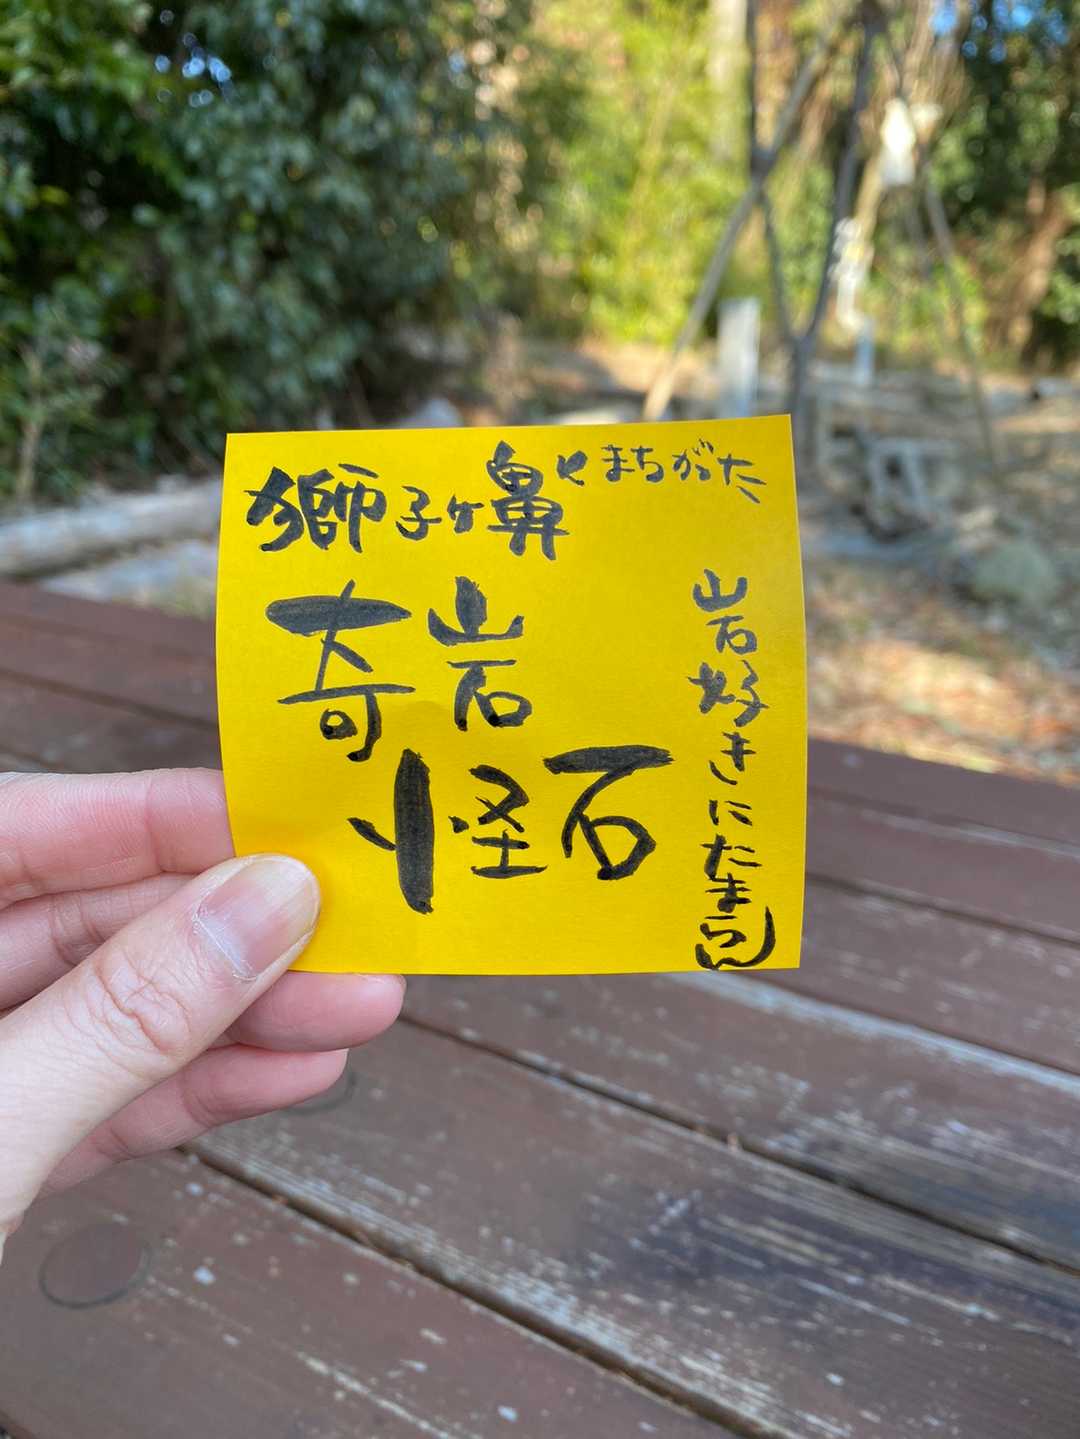 獅子ヶ鼻とまちがった
奇岩
怪石
岩好きにたまらん